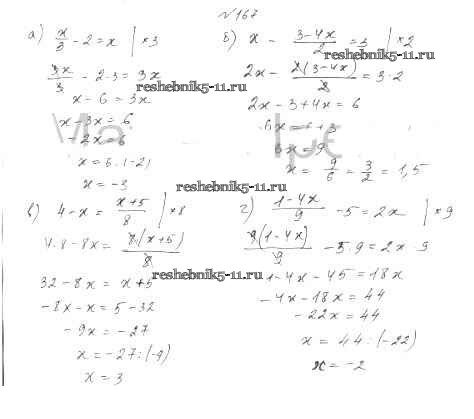 №167
а) x/3 - 2 = x | *3
3x/3 - 2·3 = 3x
x - 6 = 3x
x - 3x = 6
-2x = 6
x = 6 : (-2)
x = -3
б) x - (3-4x)/2 = 3 | *2
2x - 2(3-4x)/2 = 3·2
2x - 3 + 4x = 6
6x = 6 + 3
6x = 9
x = 9/6 = 3/2 = 1,5
в) 4 - x = (x+5)/8 | *8
4·8 - 8x = 8(x+5)/8
32 - 8x = x + 5
-8x - x = 5 - 32
-9x = -27
x = -27 : (-9)
x = 3
г) (1-4x)/9 - 5 = 2x | *9
9(1-4x)/9 - 5·9 = 2x·9
1 - 4x - 45 = 18x
-4x - 18x = 44
-22x = 44
x = 44 : (-22)
x = -2
reshebnik5-11.ru
reshebnik5-11.ru
reshebnik5-11.ru
reshebnik5-11.ru
reshebnik5-11.ru